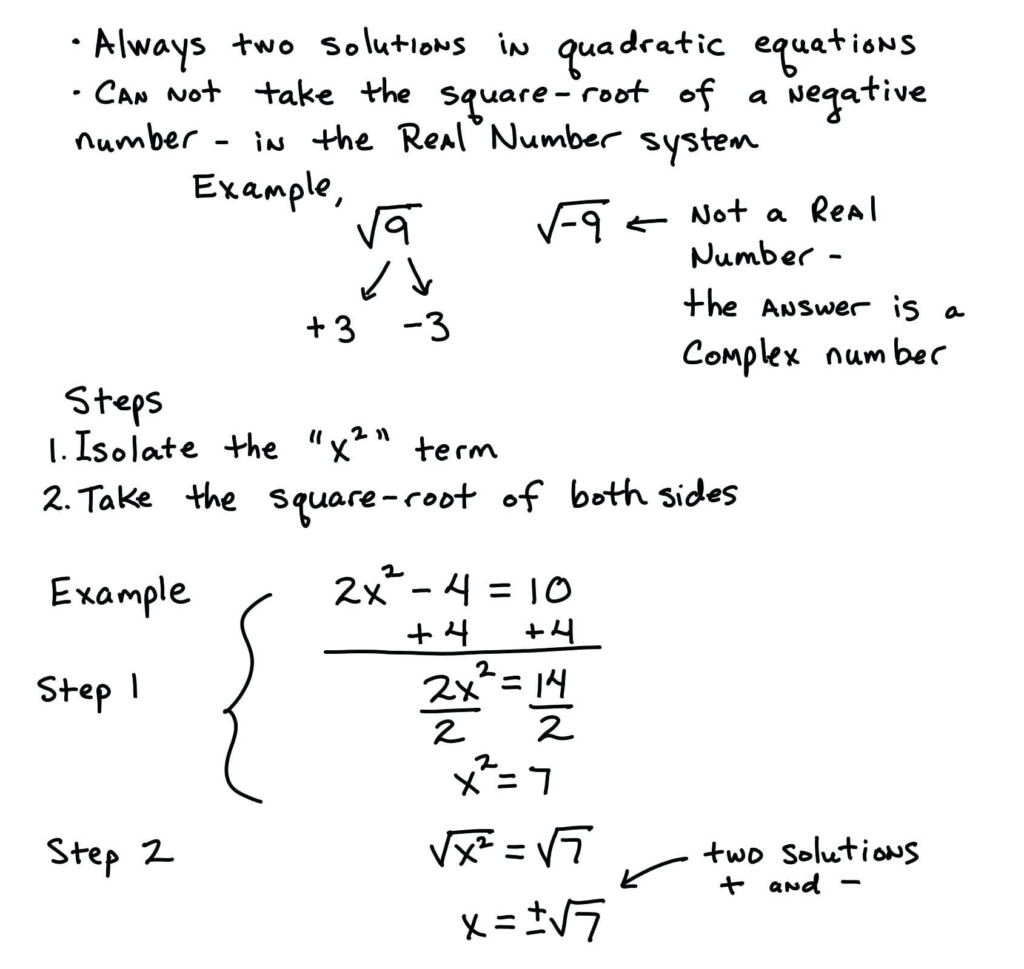 · Always two solutions in quadratic equations
· Can not take the square-root of a negative
number - in the Real Number system
Example,
√9
↙ ↘
+3 -3
√-9 ← Not a Real
Number -
the answer is a
Complex number
Steps
1. Isolate the "x²" term
2. Take the square-root of both sides
Example
2x² - 4 = 10
+4 +4
Step 1
2x² = 14
2 2
x² = 7
Step 2
√x² = √7
x = ±√7
two solutions
+ and -